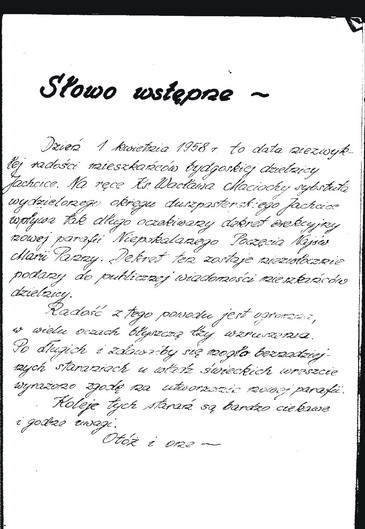 Słowo wstępne ~
Dzień 1 kwietnia 1958 r to data niezwyk-
łej radości mieszkańców bydgoskiej dzielnicy
Jachcice. Na ręce Ks Wacława Maciochy sybstuta
wydzielonego okręgu duszpasterskiego Jachcice
wpływa tak długo oczekiwany dekret erekcyjny
nowej parafii Niepokalanego Poczęcia Najśw
Marii Panny. Dekret ten zostaje niezwłocznie
podany do publicznej wiadomości mieszkańców
dzielnicy.
Radość z tego powodu jest ogromna,
w wielu oczach błyszczą łzy wzruszenia.
Po długich i zdawałby się mogło beznadziej-
nych staraniach u władz świeckich wreszcie
wyrażono zgodę na utworzenie nowej parafii.
Koleje tych starań są bardzo ciekawe
i godne uwagi.
Otóż i one ~